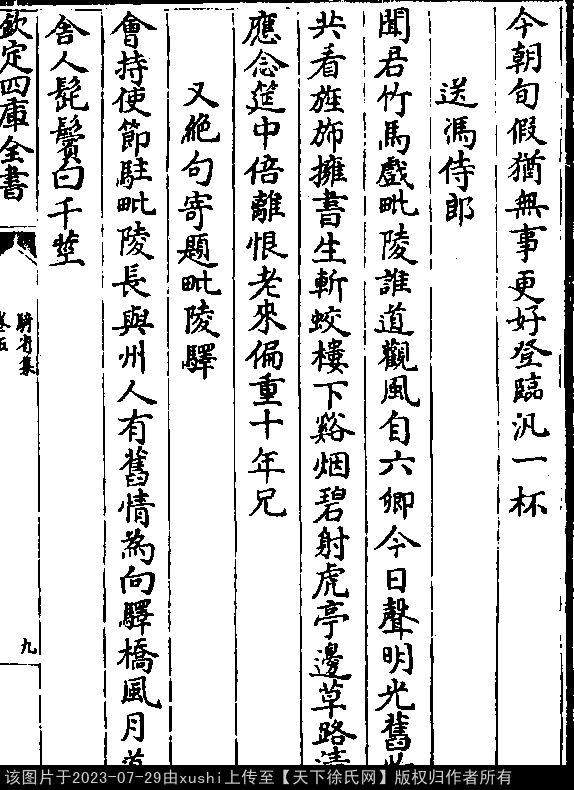 今朝旬假猶無事更好登臨汎一杯
送馮侍郎
聞君竹馬戲毗陵誰道觀風自六卿今日聲明光舊
共看旌斾擁書生斬蛟樓下谿烟碧射虎亭邊草路清
應念筵中倍離恨老來偏重十年兄
又絶句寄題毗陵驛
曾持使節駐毗陵長與州人有舊情為向驛橋風月
舍人髭鬢白千莖
欽定四庫全書
騎省集
卷五
九
该图片于2023-07-29由xushi上传至【天下徐氏网】版权归作者所有